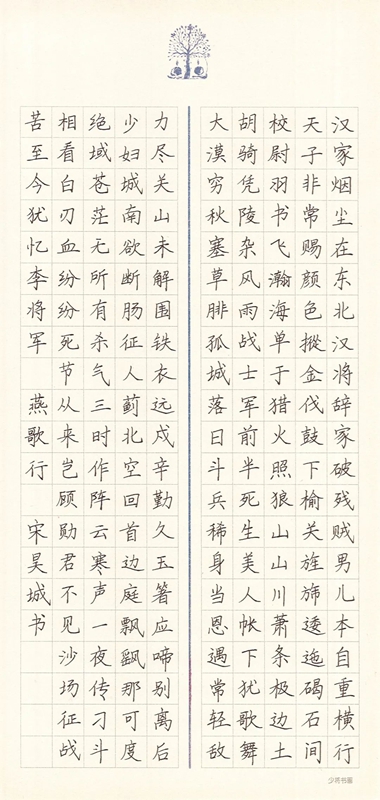 汉家烟尘在东北汉将辞家破残贼男儿本自重横行
天子非常赐颜色摐金伐鼓下榆关旌旆逶迤碣石间
校尉羽书飞瀚海单于猎火照狼山山川萧条极边土
胡骑凭陵杂风雨战士军前半死生美人帐下犹歌舞
大漠穷秋塞草腓孤城落日斗兵稀身当恩遇常轻敌
力尽关山未解围铁衣远戍辛勤久玉箸应啼别离后
少妇城南欲断肠征人蓟北空回首边庭飘飖那可度
绝域苍茫无所有杀气三时作阵云寒声一夜传刁斗
相看白刃血纷纷死节从来岂顾勋君不见沙场征战
苦至今犹忆李将军 燕歌行 宋昊城书